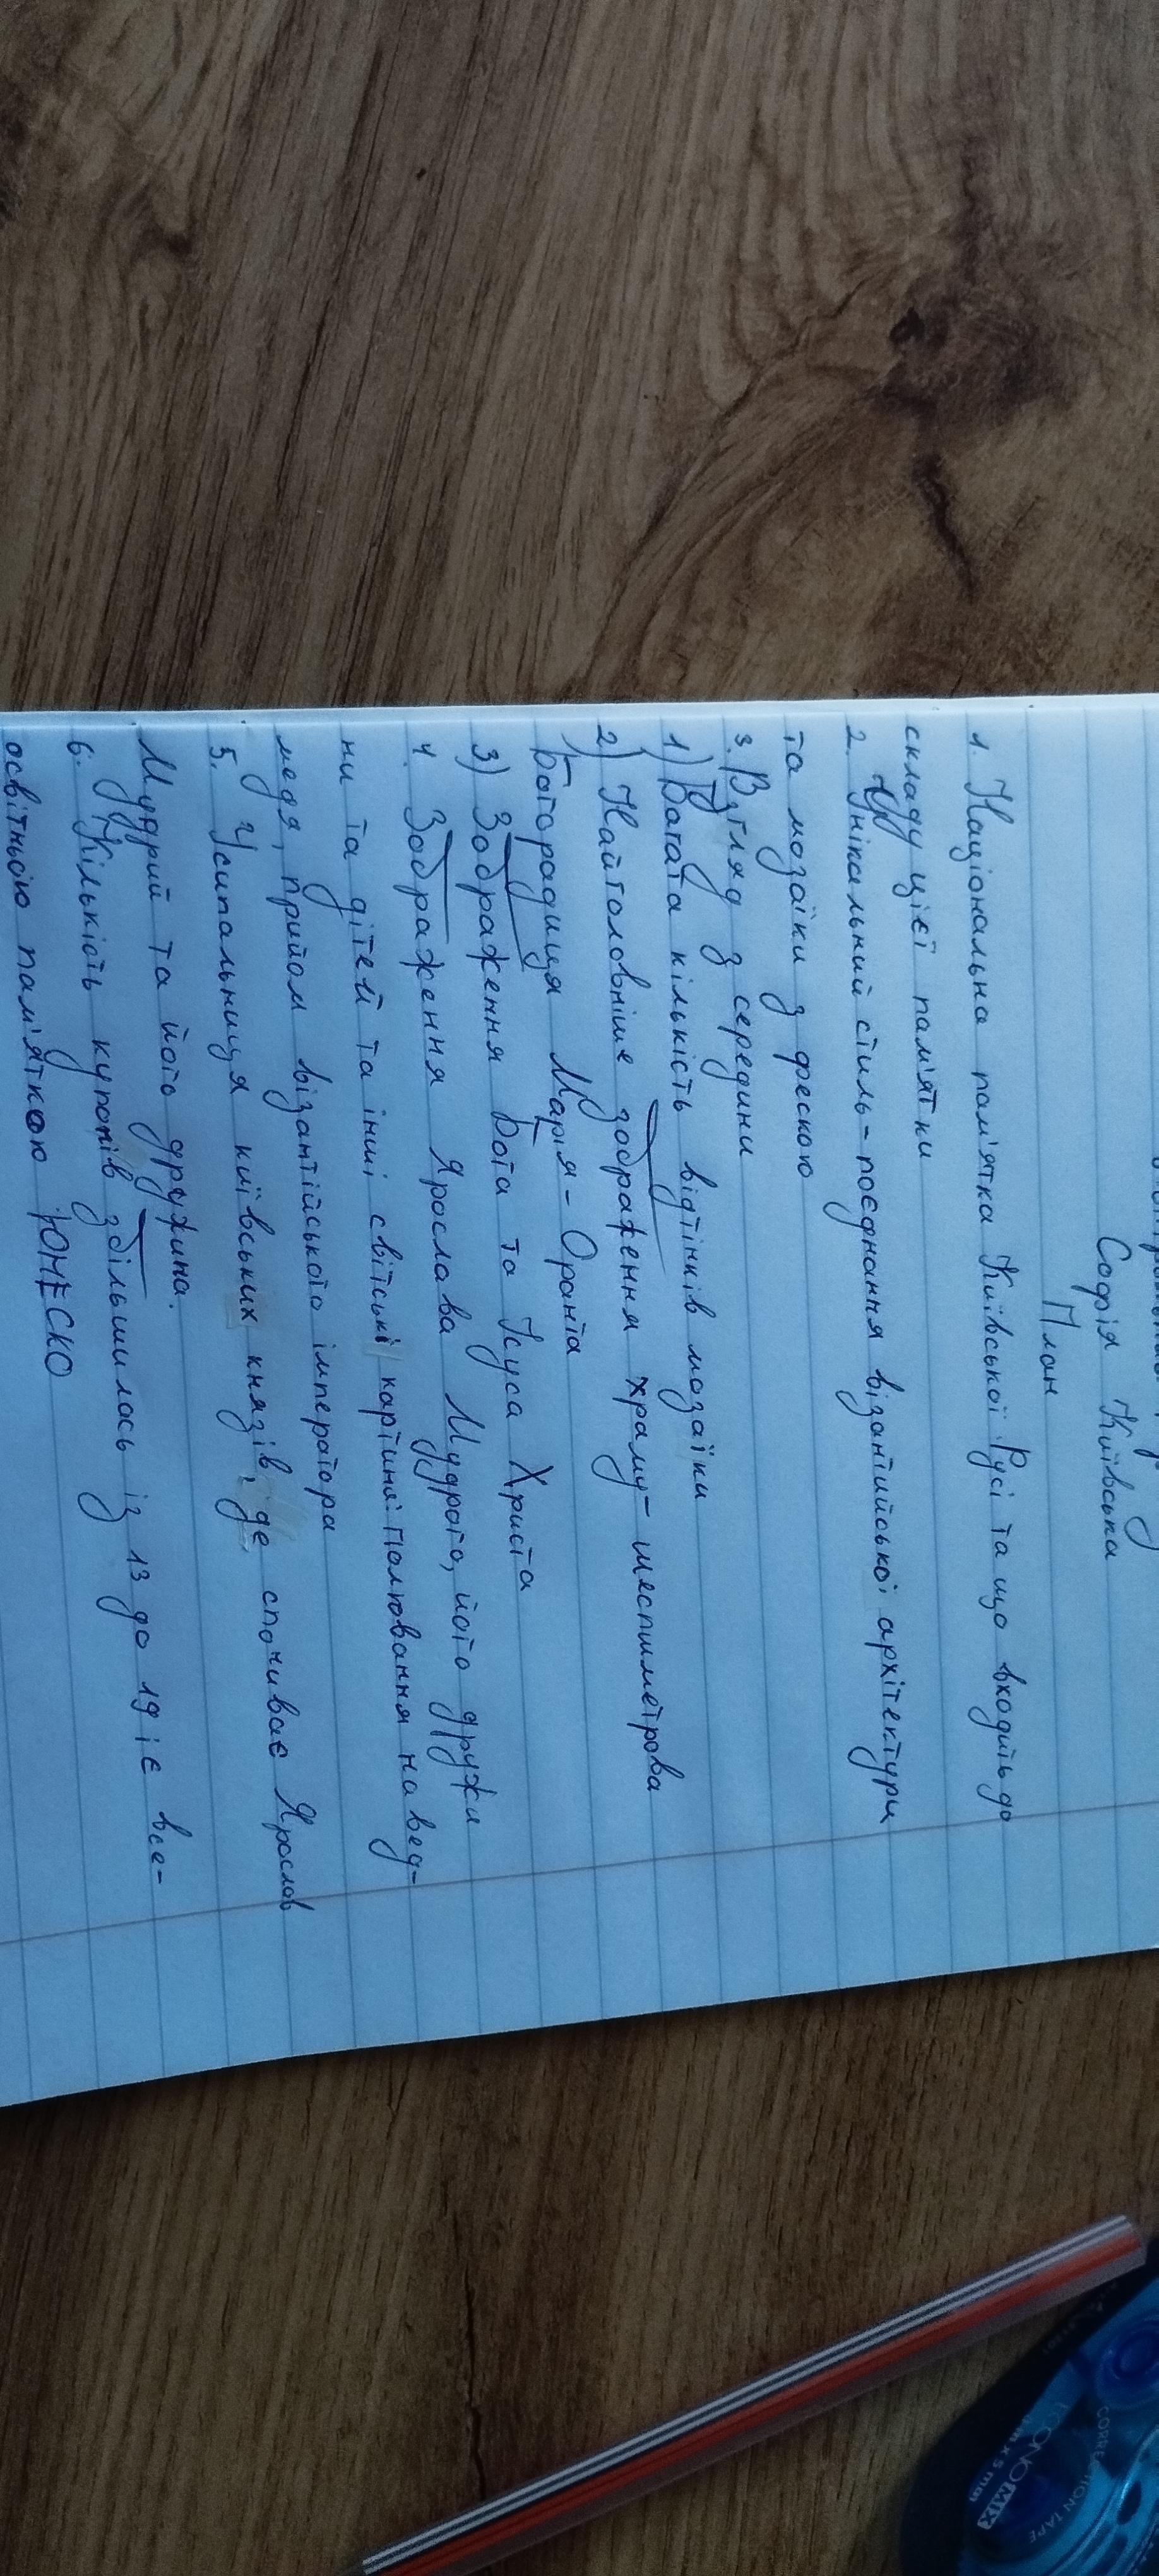 Софія Київська
План
1. Національна пам'ятка Київської Русі та що входить до
складу цієї пам'ятки
2. Унікальний стиль - поєднання візантійської архітектури
та мозаїки з фрескою
3. Взгляд з середини
1) Багата кількість відтінків мозаїки
2) Найголовніше зображення храму - шестиметрова
Богородиця Марія - Оранта
3) Зображення Бога та Ісуса Христа
4. Зображення Ярослава Мудрого, його дружи
ни та дітей та інші світські картини: полювання на вед-
медя, прийом візантійського імператора
5. Усипальниця київських князів, де спочиває Ярослав
Мудрий та його дружина.
6. Кількість куполів збільшилась із 13 до 19 і є все-
освітньою пам'яткою ЮНЕСКО
ECONOMIX
CORRECTION TAPE
mm x 5 m